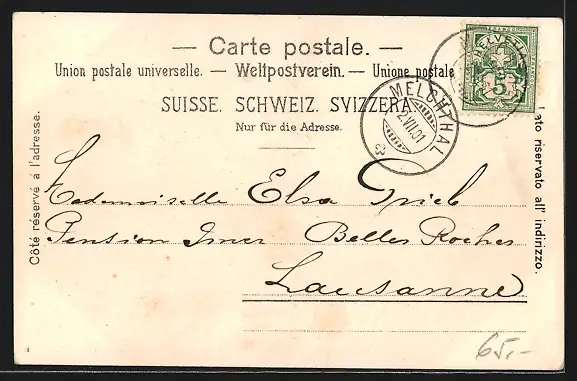 — Carte postale. —
Union postale universelle. — Weltpostverein. — Unione postale
SUISSE. SCHWEIZ. SVIZZERA.
Nur für die Adresse.
Côté réservé à l'adresse.
Lato riservato all' indirizzo.
HELVETIA
5
MELCHTHAL
2.VII.01
Mademoiselle Elsa Grieb
Pension Imer Belles Roches
Lausanne
65.-